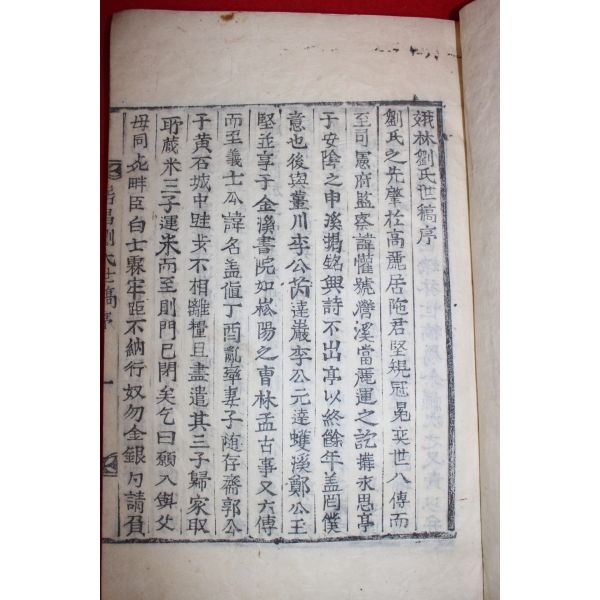 娥林劉氏世稿序
劉氏之先肇於高麗居陁君堅規冠冕奕世八傳而
至司憲府監察諱懽號灣溪當麗運之訖搆永思亭
于安陰之申溪揭銘興詩不出亭以終餘年盖罔僕
意也後與薑川李公芮達巖李公元達蠖溪鄭公玉
堅並享于金溪書院如崧陽之曺林孟古事又六傳
而至義士公諱名盖値丁酉亂率妻子随存齋郭公
于黃石城中跬步不相離糧且盡遣其三子歸家取
所蔵米三子運米而至則門已閉矣乞曰願入與父
母同死畔臣白士霖牢距不納行奴勿金銀勺請負
居昌劉氏世稿序
一